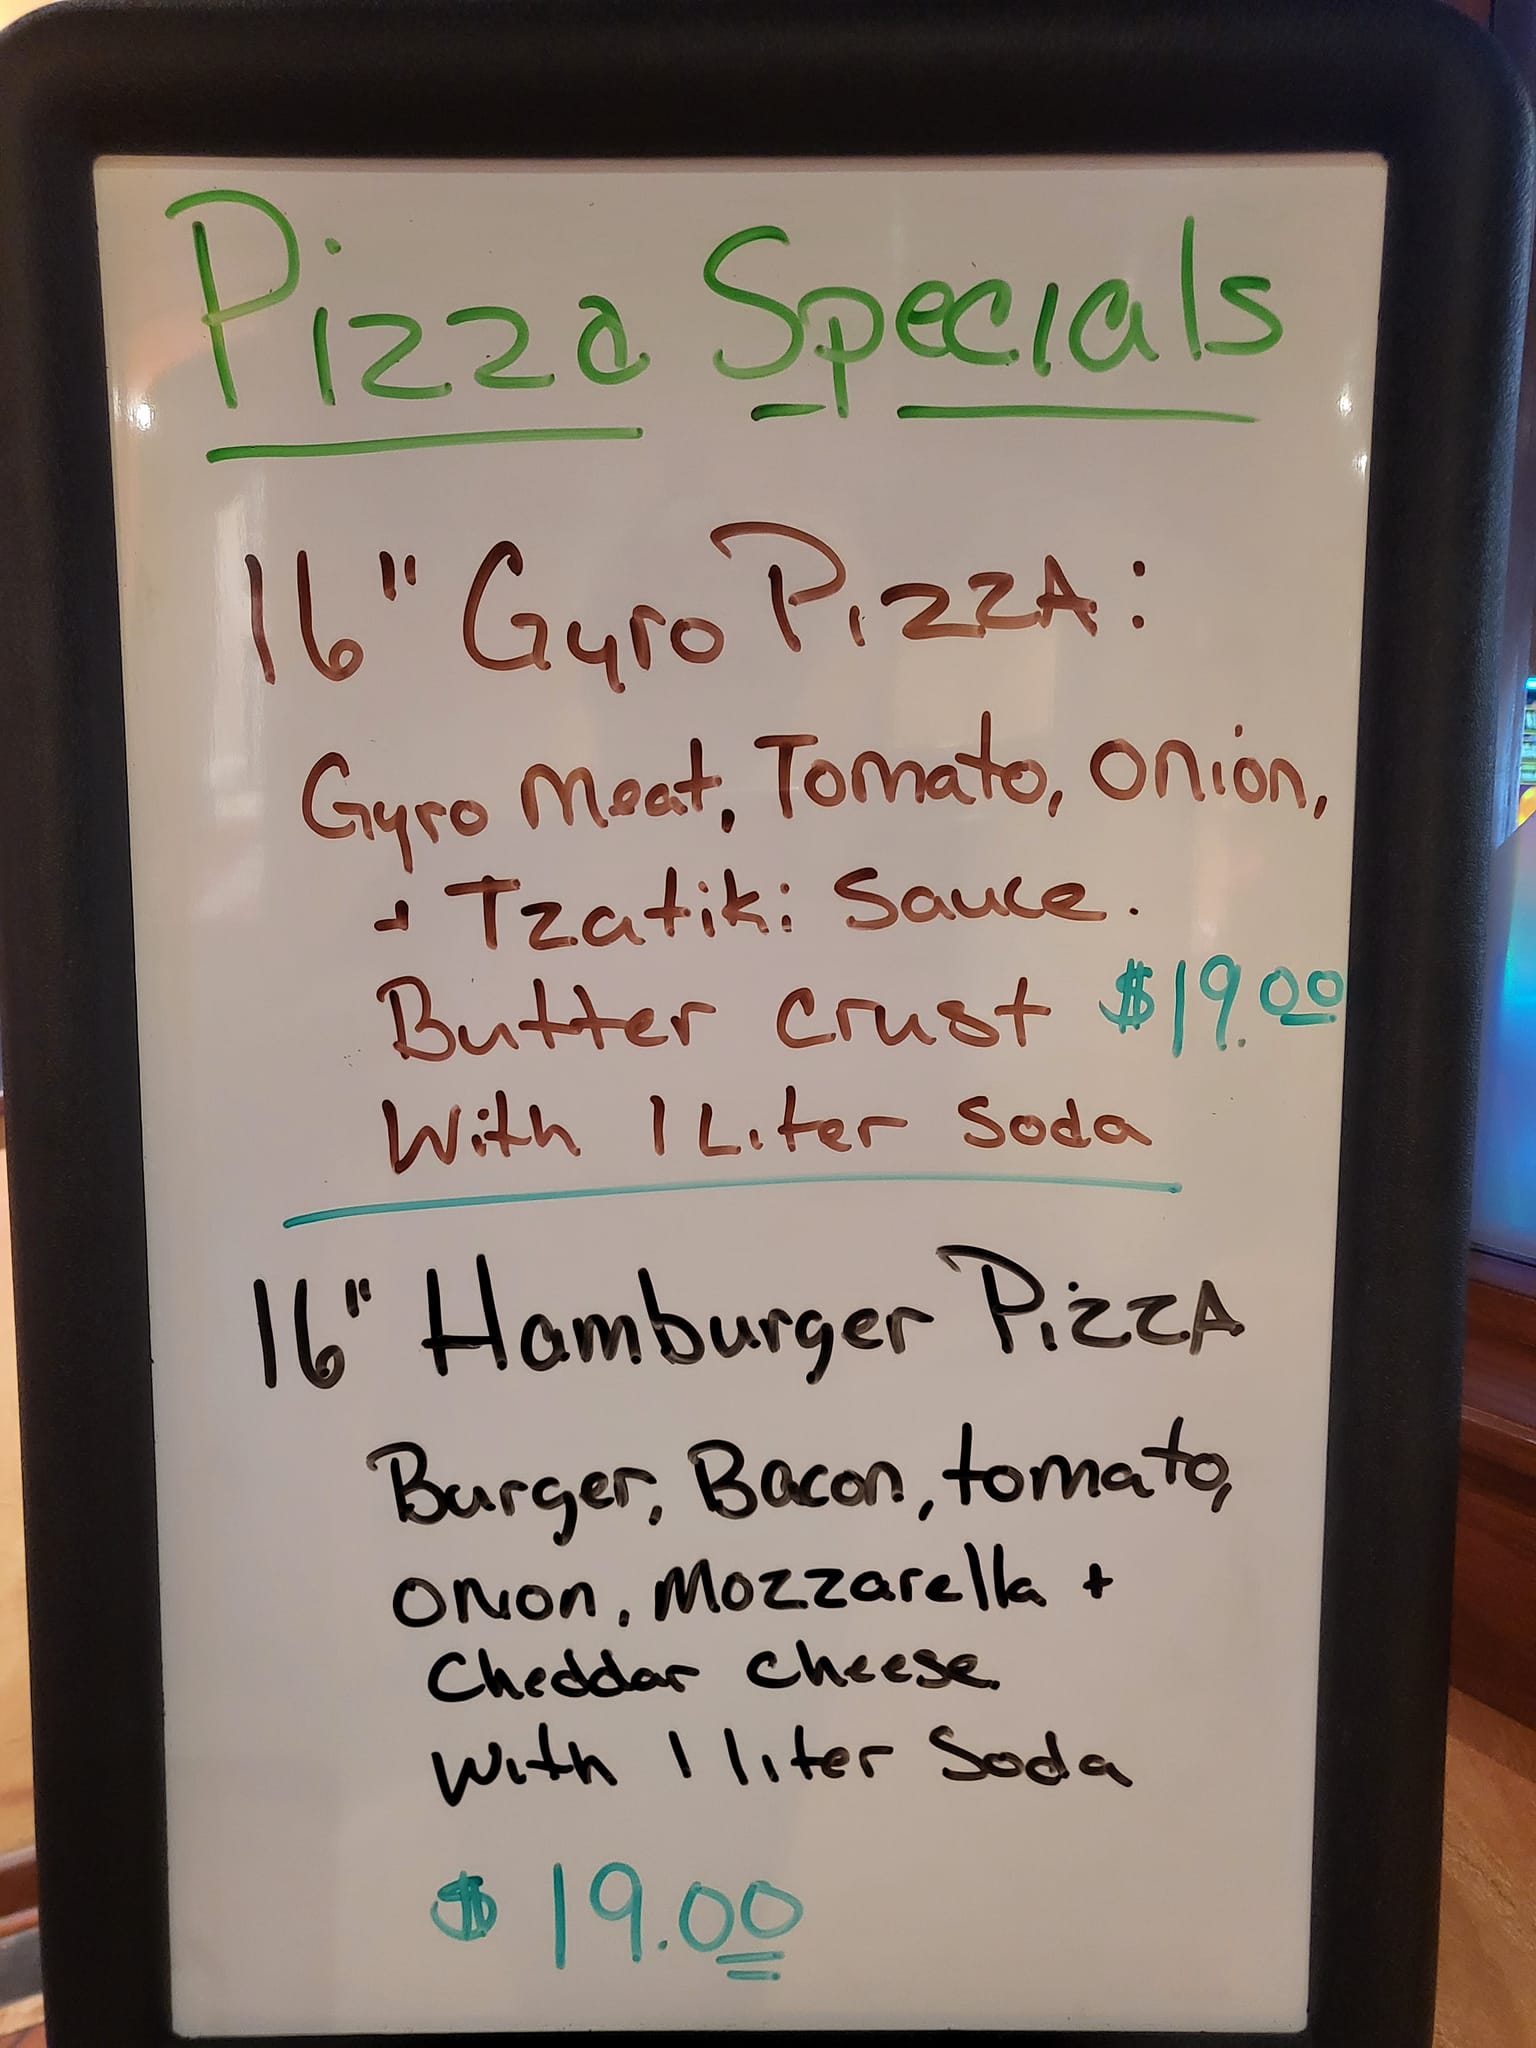 Pizza Specials
16" Gyro PizzA:
Gyro Meat, Tomato, Onion,
+ Tzatiki Sauce.
Butter Crust $19.00
With 1 Liter Soda
16" Hamburger PizzA
Burger, Bacon, tomato,
Onion, Mozzarella +
Cheddar Cheese
With 1 liter Soda
$19.00